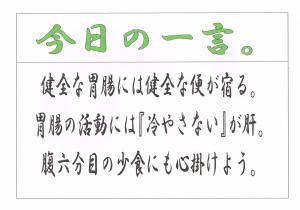 今日の一言。
健全な胃腸には健全な便が宿る。
胃腸の活動には『冷やさない』が肝。
腹六分目の少食にも心掛けよう。